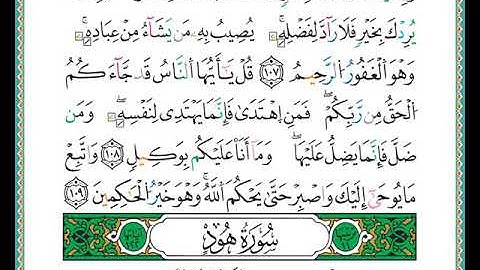 يُرِدْكَ بِخَيْرٍ فَلَا رَآدَّ لِفَضْلِهِۦۚ يُصِيبُ بِهِۦ مَن يَشَآءُ مِنْ عِبَادِهِۦۚ
وَهُوَ ٱلْغَفُورُ ٱلرَّحِيمُ ١٠٧ قُلْ يَٰٓأَيُّهَا ٱلنَّاسُ قَدْ جَآءَكُمُ
ٱلْحَقُّ مِن رَّبِّكُمْۖ فَمَنِ ٱهْتَدَىٰ فَإِنَّمَا يَهْتَدِى لِنَفْسِهِۦۖ وَمَن
ضَلَّ فَإِنَّمَا يَضِلُّ عَلَيْهَاۖ وَمَآ أَنَا۠ عَلَيْكُم بِوَكِيلٍ ١٠٨ وَٱتَّبِعْ
مَا يُوحَىٰٓ إِلَيْكَ وَٱصْبِرْ حَتَّىٰ يَحْكُمَ ٱللَّهُۚ وَهُوَ خَيْرُ ٱلْحَٰكِمِينَ ١٠٩
سُورَةُ هُودٍ